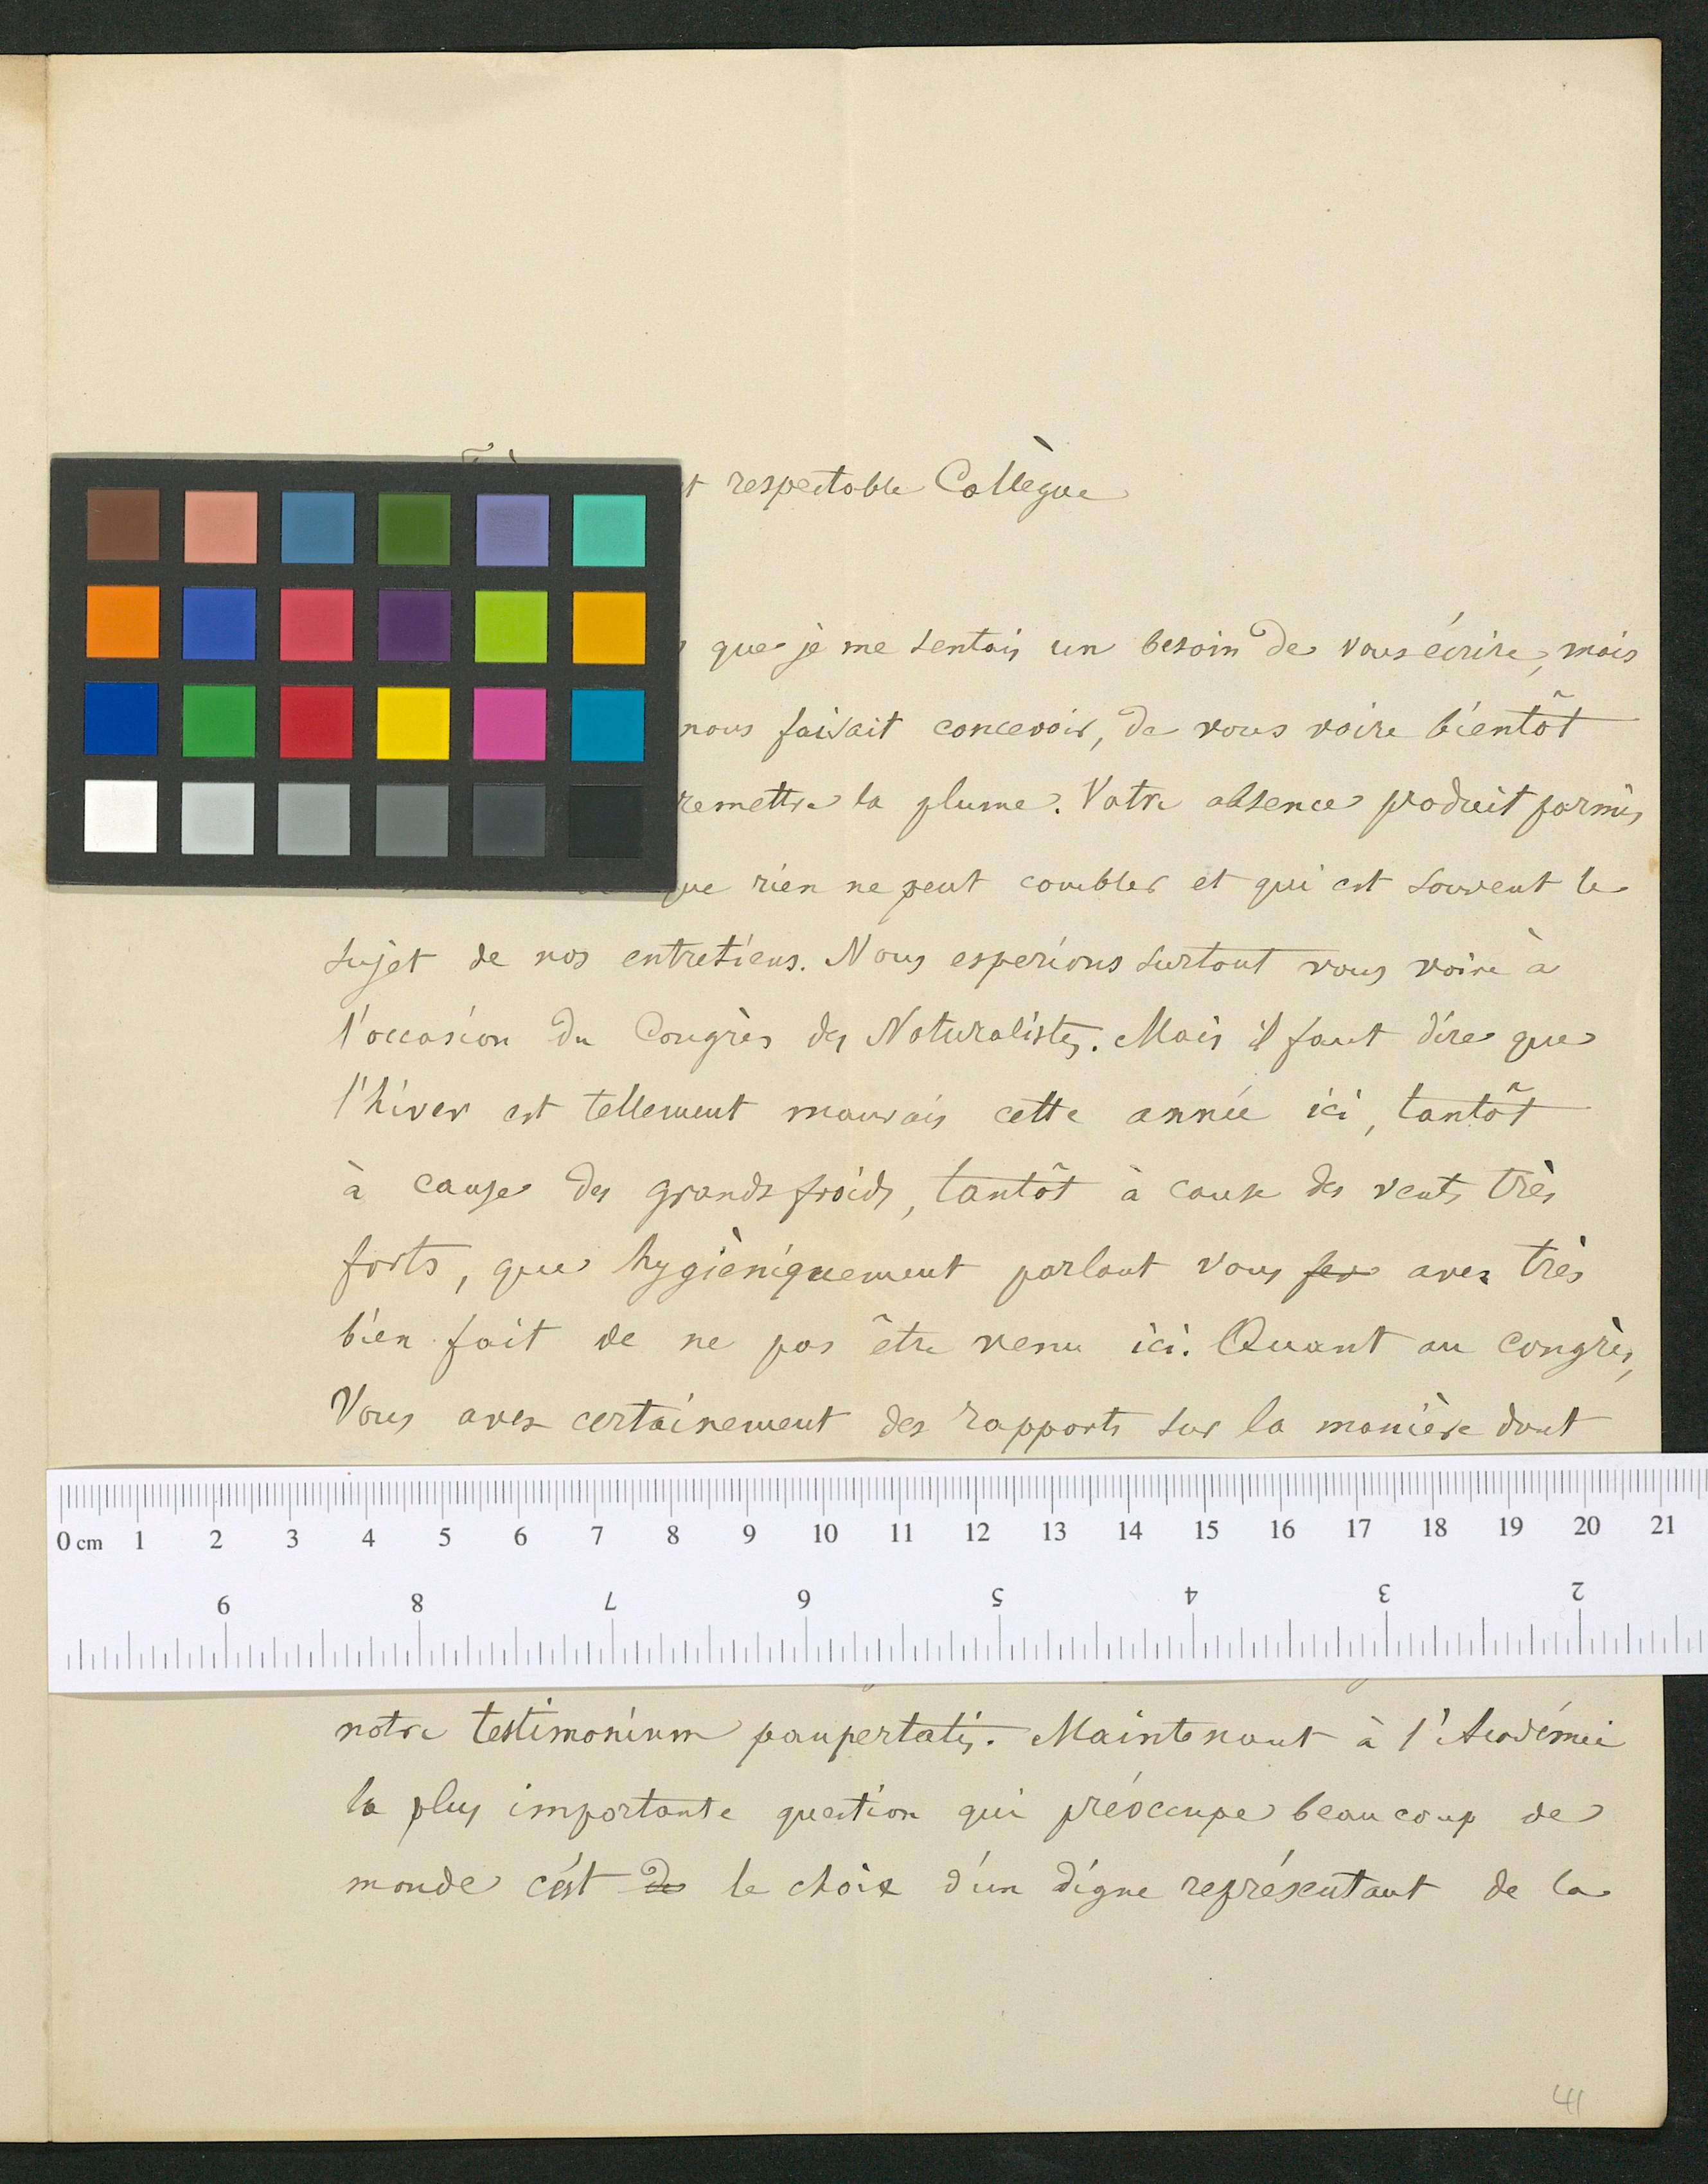 respectable Collègue
que je me sentais un besoin de vous écrire, mais
nous faisait concevoir, de vous voire bientôt
remettre la plume. Votre absence produit parmis
que rien ne peut combler et qui est souvent le
sujet de nos entretiens. Nous esperions surtout vous voire à
l'occasion du Congrès des Naturalistes. Mais il faut dire que
l'hiver est tellement mauvais cette année ici, tantôt
à cause des grands froids, tantôt à cause des vents très
forts, que hygièniquement parlant vous avez très
bien fait de ne pas être venu ici. Quant au congrès,
Vous avez certainement des rapports sur la manière dont
0 cm 1 2 3 4 5 6 7 8 9 10 11 12 13 14 15 16 17 18 19 20 21
9 8 7 6 5 4 3 2
notre testimonium paupertatis. Maintenant à l'Académie
la plus importante question qui préoccupe beaucoup de
monde c'est de le choix d'un digne représentant de la
41